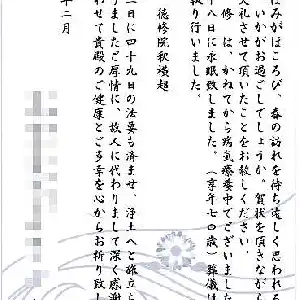 みがほころび、春の訪れを待ち遠しく思われる
いかがお過ごしでしょうか。賀状を頂きなが
欠礼させて頂いたことをお許しください。
修 は、かねてから病気療養中でございました
十八日に永眠致しました。(享年七〇歳)葬儀は
執り行いました。
徳修院釈
二日に四十九日の法要も済ませ、浄土へと旅立
りましたご厚情に、故人に代わりまして深く感謝
わせて貴殿のご健康とご多幸を心からお祈り致し
年二月